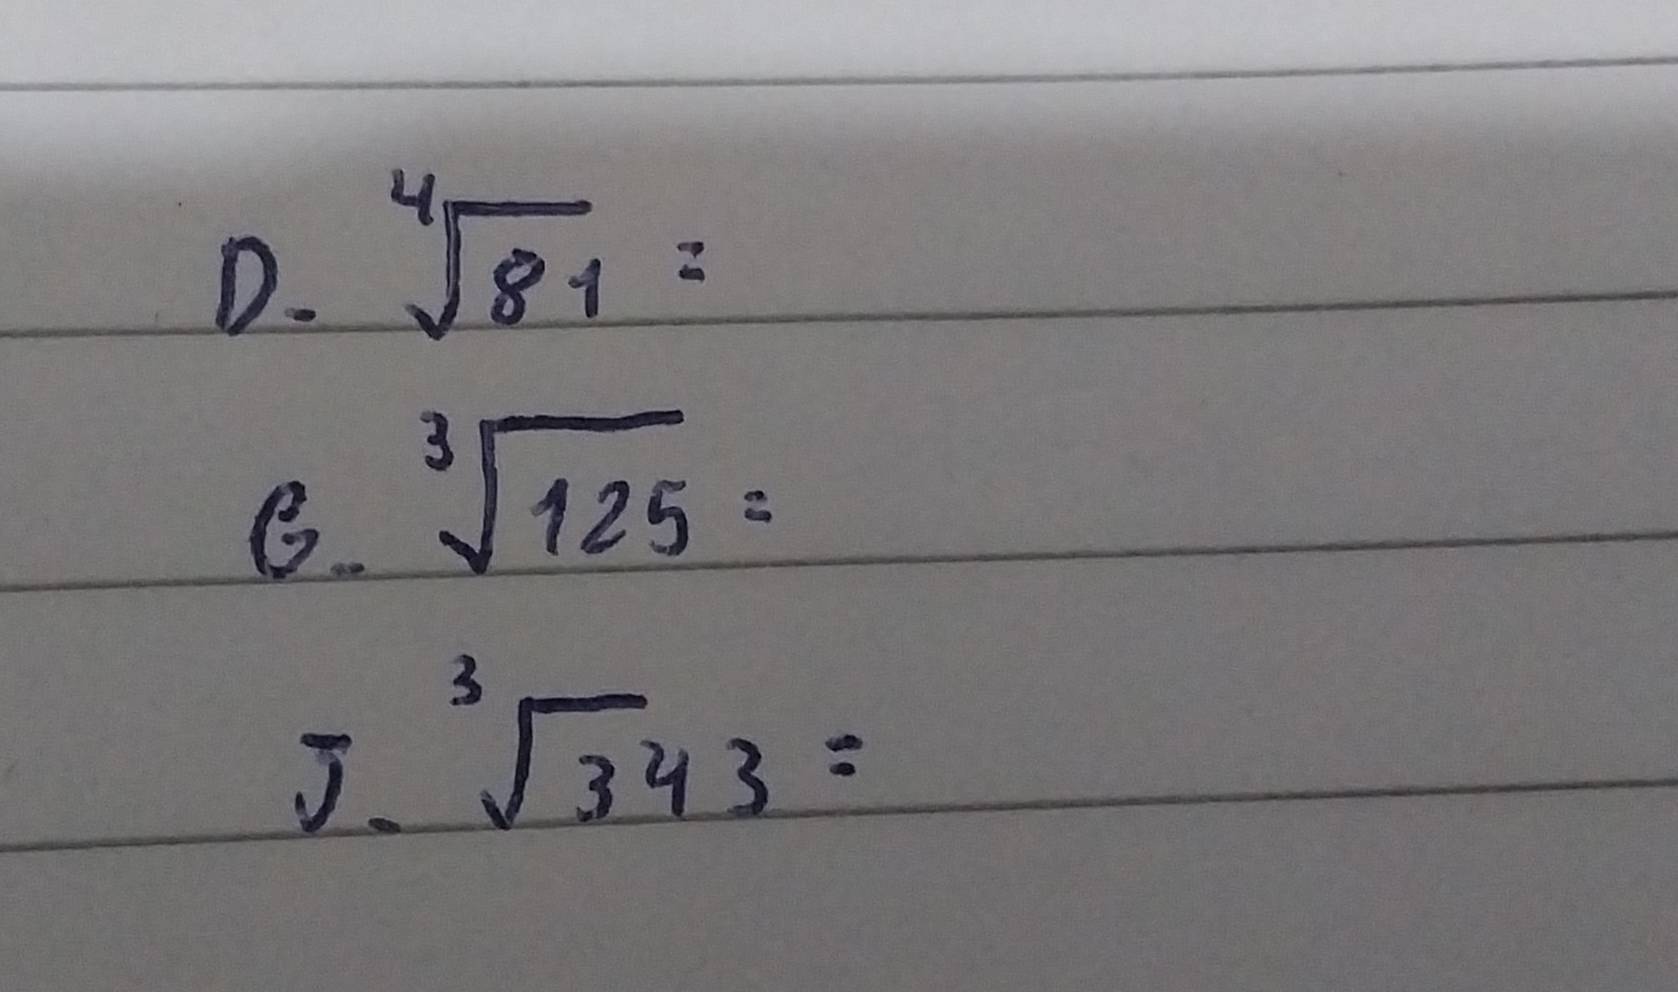 D. ⁴√81 =
G. ³√125 =
J. ³√343 =